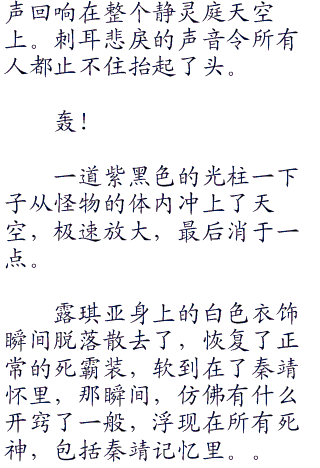 声回响在整个静灵庭天空
上。刺耳悲戾的声音令所有
人都止不住抬起了头。
轰！
一道紫黑色的光柱一下
子从怪物的体内冲上了天
空，极速放大，最后消于一
点。
露琪亚身上的白色衣饰
瞬间脱落散去了，恢复了正
常的死霸装，软到在了秦靖
怀里，那瞬间，仿佛有什么
开窍了一般，浮现在所有死
神，包括秦靖记忆里。。